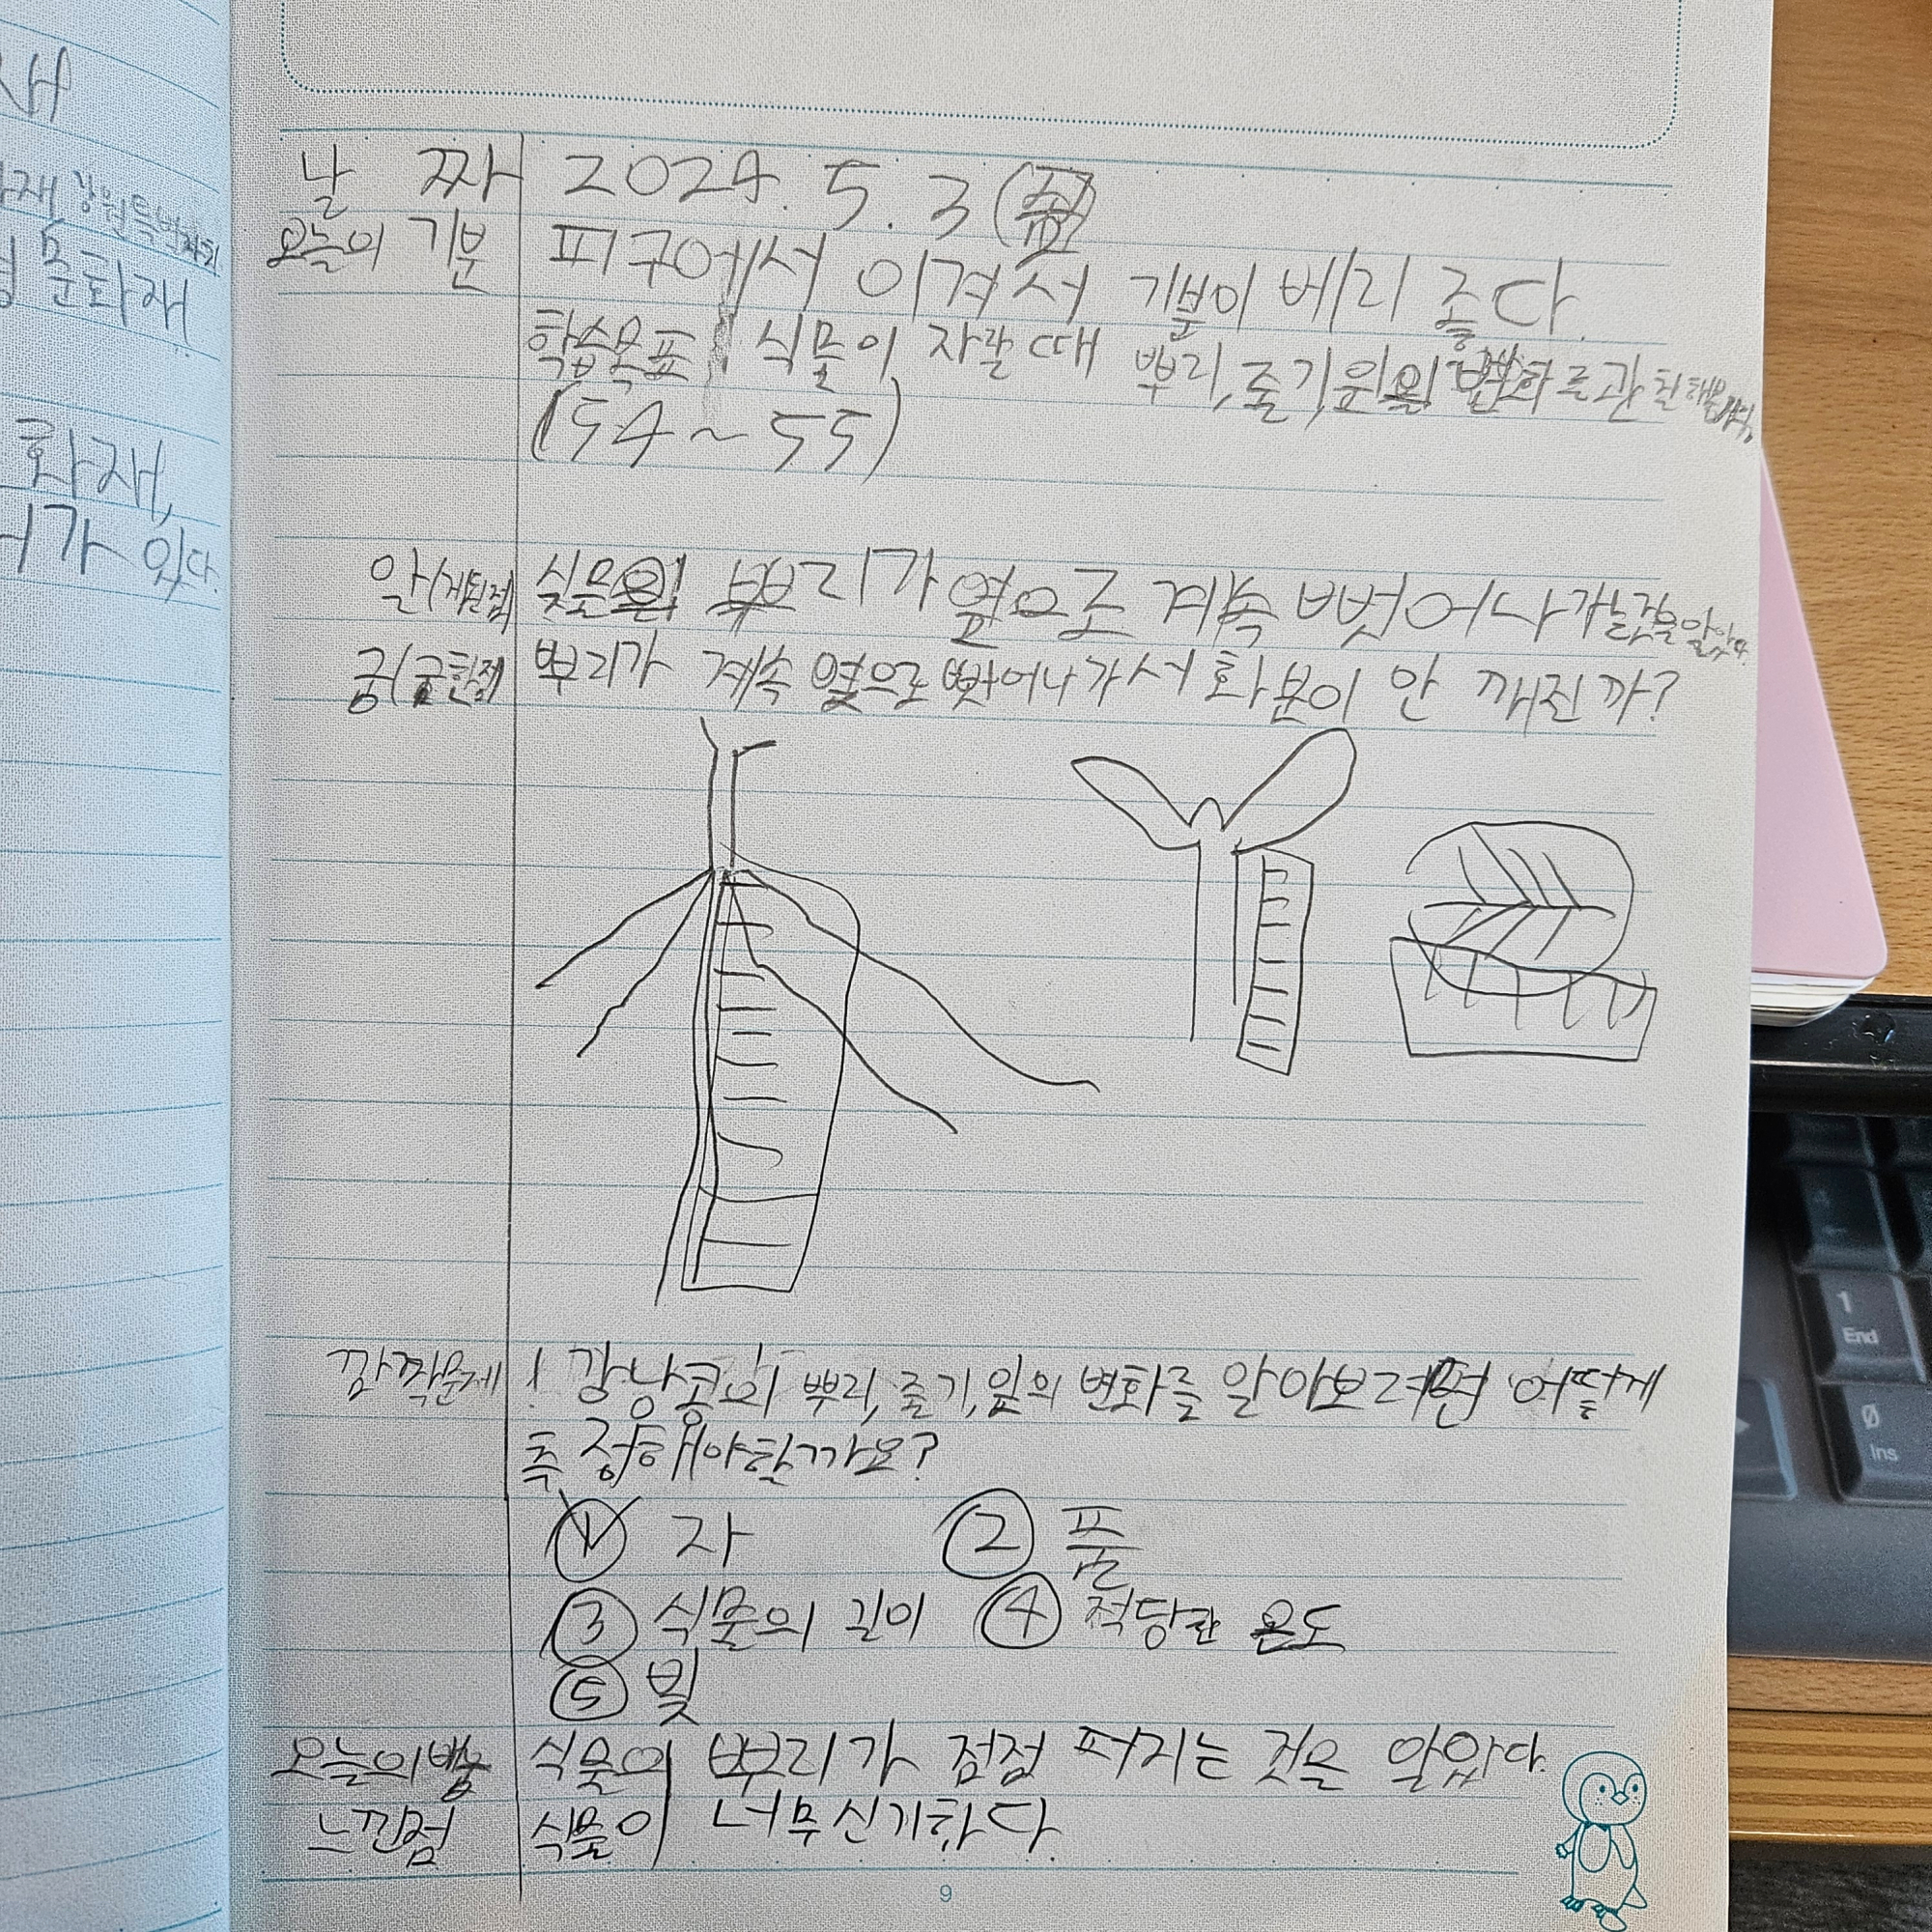 새
화재, 강원특별자치
문화재
화재,
가 있다.
날 짜 2024. 5. 3 (금)
오늘의 기분 피구에서 이겨서 기분이 베리 좋다.
학습목표 식물이 자랄 때 뿌리, 줄기, 잎의 변화를 관찰해봅시다.
(54~55)
알(게된점) 식물의 뿌리가 옆으로 계속 뻗어나가는 것을 알았다.
궁(금한점) 뿌리가 계속 옆으로 뻗어나가서 화분이 안 깨진까?
깜짝문제 ! 강낭콩의 뿌리, 줄기, 잎의 변화를 알아보려면 어떻게
측정해야할까요?
① 자 ② 풀
③ 식물의 길이 ④ 적당한 온도
⑤ 빛
오늘의배움 식물의 뿌리가 점점 퍼지는 것을 알았다.
느낀점 식물이 너무 신기하다.
9
1
End
0
Ins